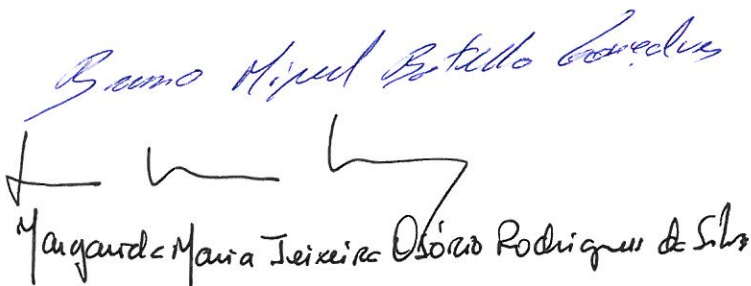 Bruno Miguel Botelho Gonçalves
Margarida Maria Teixeira Osório Rodrigues da Silva